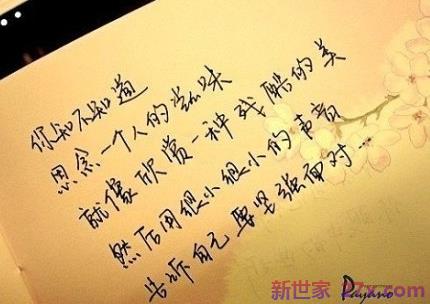 你知不知道
思念一个人的滋味
就像欣赏一种残酷的美
然后用很小很小的声音
告诉自己要坚强面对...
Payano
新世家 27x.com